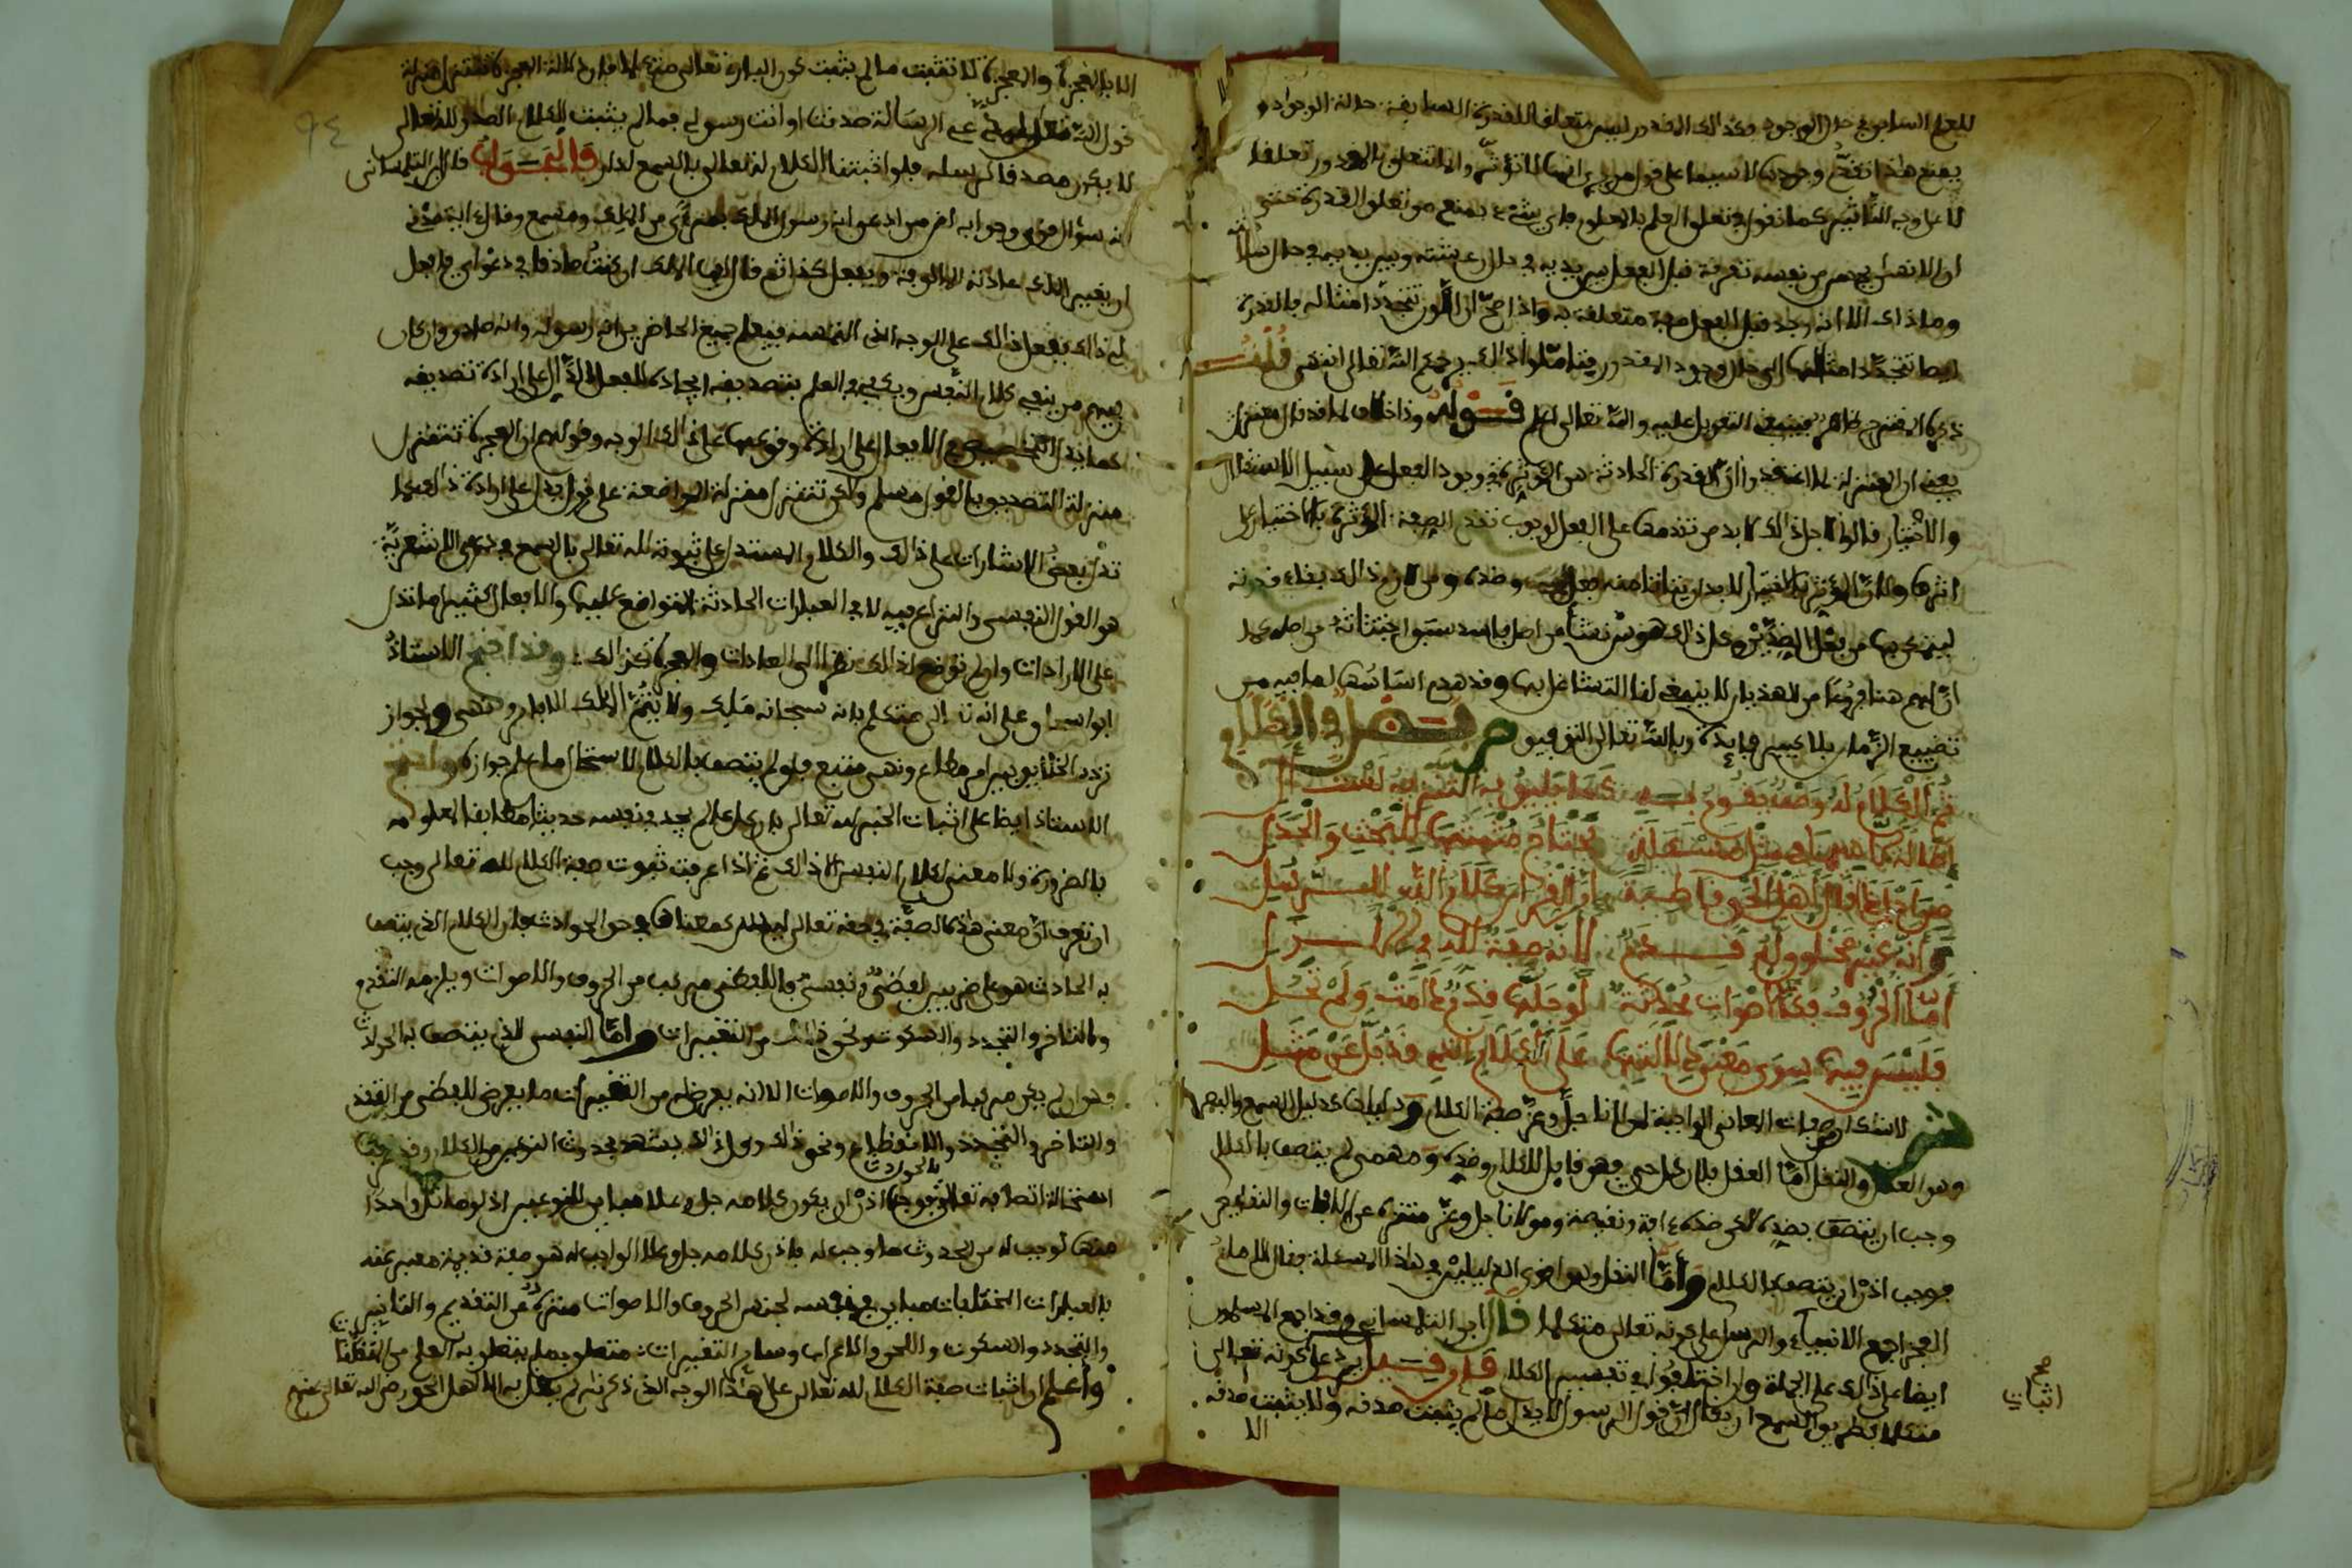 للعلم السابق في حال الوجود وكذالك المقدور ليس متعلقا للقدرة السابقة حالة الوجود
يمنع هذا تقدم وجودها لا سيما على قول من يرى انها لا تؤثر وانما تتعلق بالمقدور تعلقا
لا على وجه التأثير كما نقول في تعلق العلم بالمعلوم فاي شيء يمنع من تعلق القدرة حتى
ان الانسان يحس من نفسه تفرقة قبل الفعل بين يديه في حال رعشته وبين يديه في حال سلامته
وما ذاك الا انه وجد قبل الفعل صفة متعلقة به واذا صح ان الكون تتجدد امثاله فالقدرة
ايضا تتجدد امثالها الى حال وجود المقدور فتاملوا ذالك يرحمكم الله تعالى انتهى قلت
ذكره المقترح ظاهر فينبغي التعويل عليه والله تعالى اعلم قوله وذا خلاف لما قد قال معتزل
يعني ان المعتزلة لما اعتقدوا ان القدرة الحادثة هي المؤثرة في وجود الفعل على سبيل الاستقلال
والاختيار قالوا لاجل ذالك لا بد من تقدمها على الفعل لوجوب تقدم الصفة المؤثرة بالاختيار على
اثرها ولان المؤثر بالاختيار لا بد ان يتاتا منه فعل الشيء وضده ومن لازم ذالك بقاء قدرته
ليتمكن بها من فعل الضدين وكل ذالك هوس نشأ من اصل فاسد سبق اجتثاثه من اصله كما
ان لهم هنا فروعا من الهذيان لا ينبغي لنا التشاغل بها وقد هدم اساسها لما فيه من
تضييع الزمان بلا كبير فايدة وبالله تعالى التوفيق ص فصل في الكلام
ثم الكلام له وصف يقوم به كما يليق به التنزيه لعن
صواب فاقال اهل الحق قاطبة ان القران كلام الله للرسل
وانه غير مخلوق له قدم لانه صفة لله في الازل
اما الحروف فكالاصوات محدثة لو حلت قدما قامت ولم تحل
فليس فيها سوى معنى دلالتها على الكلام الذي قد جل عن مثل
ش لا شك ان صفات المعاني الواجبة لمولانا جل وعز صفة الكلام ودليلها كدليل السمع والبصر
وهو العقل والنقل اما العقل فلان كل حي فهو قابل للكلام وضده ومهما لم يتصف بالكلام
وجب ان يتصف بضده لكن ضده ءافة ونقيصة ومولانا جل وعز منزه عن الافات والنقايص
فوجب اذن ان يتصف بالكلام واما النقل وهو اقوى الدليلين في هذا المسئلة فقال الامام
الفخر اجمع الانبياء والرسل على كونه تعالى متكلما قال ابن التلمساني وقد اجمع المسلمون
ايضا على ذالك على الجملة وان اختلفوا في تفسير الكلام فلو قيل يرد على كونه تعالى
متكلما بطريق السمع ان يقال ان قول الرسول لا يدل ما لم يثبت صدقه ولا يثبت صدقه
الا
صح
اثبات
٩٤
الا بالمعجزة والمعجزة لا تثبت ما لم يثبت كون الباري تعالى متكلما فان دلالة المعجزة تتنزل منزلة
قول الله تعالى لمدعي الرسالة صدقت او انت رسولي فما لم يثبت الكلام الصدق لله تعالى
لا يكون مصدقا لرسله فلو اثبتنا الكلام له تعالى بالسمع لدار فالجواب قال ابن التلمساني
انه سؤال قوي وجوابه اخر من ادعى انه رسول الملك بمرءى من الملك ومسمع وقال ايتي
ان يغير الملك عادته المالوفة ويفعل كذا ثم قال ايها الملك ان كنت صادقا في دعواي فافعل
لي ذاك ففعل ذالك على الوجه الذي التمسه فيعلم جميع الحاضرين انه رسوله وانه صادق وان كان
فيهم من ينفي كلام النفس ويكفي في العلم بتصديقه ايجاده للفعل الدال على ارادة تصديقه
كما يدل التخصيص في الافعال على ارادة وقوعها على ذالك الوجه وقولهم ان المعجزة تتنزل
منزلة التصديق بالقول مسلم ولكن تتنزل منزلة المواضعة على قول يدل على ارادة ذالك كما
تدل بعض الاشارات على ذالك والكلام المستدل على ثبوته لله تعالى بالسمع في دعوى الاشعرية
هو القول النفسي والنزاع فيه لا في العبارات الحادثة المتواضع عليها والافعال كثيرا ما تدل
على الارادات وان لم توضع لذالك نظرا الى العادات والمعجزة كذالك وقد احتج الاستاذ
ابو اسحاق على انه تعالى متكلم بانه سبحانه ملك ولا يتم الملك الا بامر ونهي ولجواز
تردد الخلايق بين امر مطاع ونهي متبع فلو لم يتصف بالكلام لاستحال ما علم جوازه واحتج
الاستاذ ايضا على اثبات الخبر لله تعالى بان كل عالم يجد في نفسه حديثا مطابقا لمعلومه
بالضرورة ولا معنى لكلام النفس الا ذالك ثم اذا عرفت ثبوت صفة الكلام لله تعالى وجب
ان تعرف ان معنى هذه الصفة في حقه تعالى ليس كمعناها في حق الحوادث فان الكلام الذي يتصف
به الحادث هو على ضربين لفظي ونفسي فاللفظي مركب من الحروف والاصوات ويلزمه التقدم
والتاخر والتجدد والسكوت ونحو ذالك من التغييرات واما النفسي الذي يتصف به الحوادث
فهو وان لم يكن مركبا من الحروف والاصوات الا انه يعرض له من التغييرات ما يعرض للفظي من التقدم
والتاخر والتجدد والانقطاع ونحو ذالك وكل ذالك يشهد بحدوث النوعين من الكلام وقد عرفت
استحالة اتصافه تعالى بالحوادث فوجب اذن ان يكون كلامه جل وعلا مباينا للنوعين اذ لو ماثل واحدا
منهما لوجب له من الحدوث ما وجب له فاذن كلامه جل وعلا الواجب له هو صفة قديمة معبر عنه
بالعبارات المختلفات مباين في نفسه لجنس الحروف والاصوات منزه عن التقديم والتاخير
والتجدد والسكوت واللحن والاعراب وساير التغييرات متعلق بما يتعلق به العلم من المتعلقات
واعلم ان اثبات صفة الكلام لله تعالى على هذا الوجه الذي ذكرناه لم يقل به الا اهل الحق رضي الله تعالى عنهم